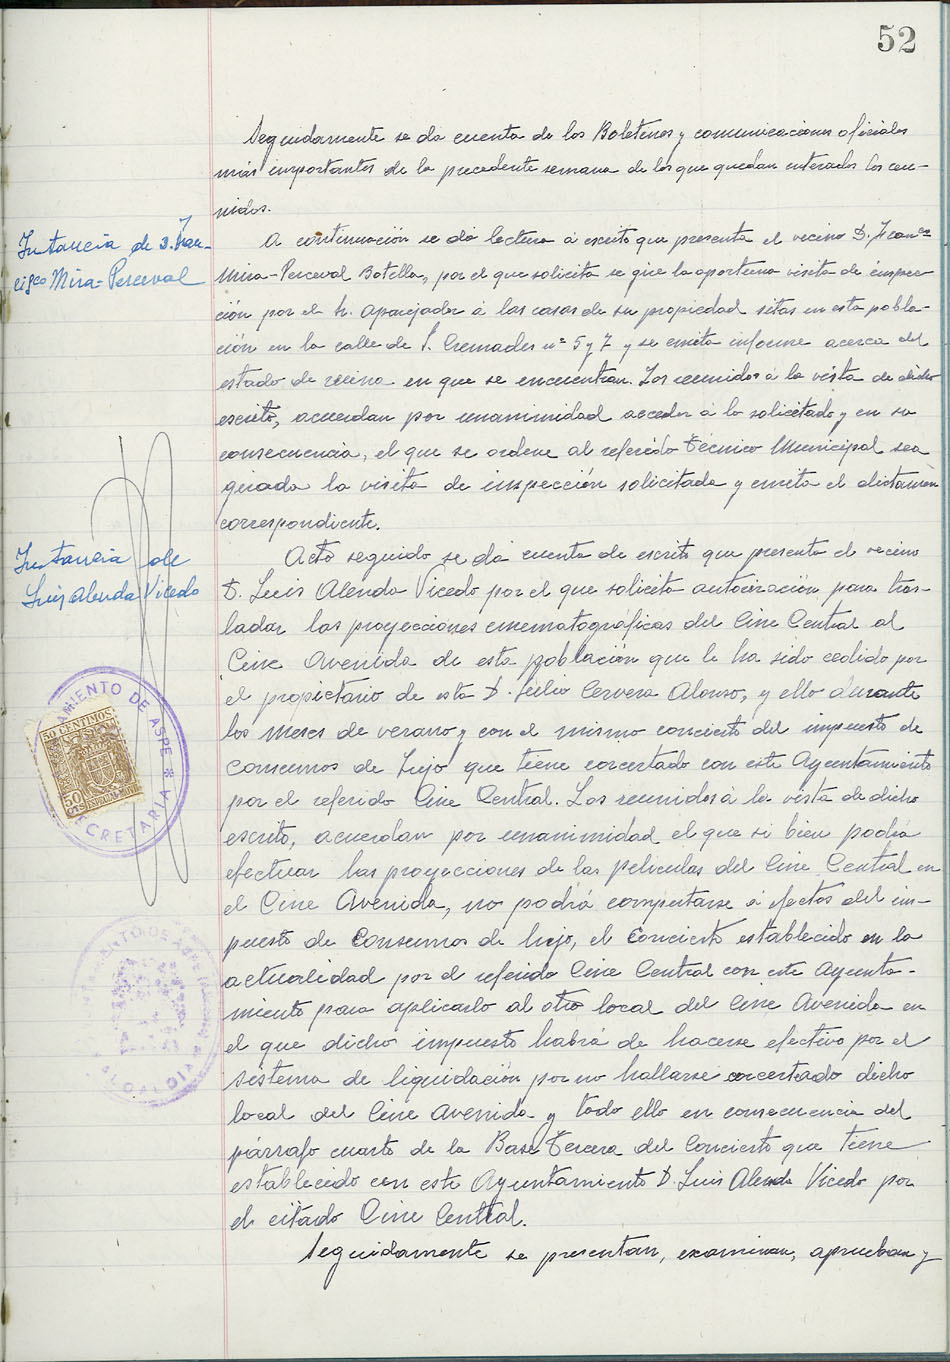 52
Seguidamente se da cuenta de los Boletines y comunicaciones oficiales
más importantes de la precedente semana de los que quedan enterados los reu-
nidos.
Instancia de D. Fran-
cisco Mira-Perceval
A continuación se dá lectura á escrito que presenta el vecino D. Francco
Mira-Perceval Botella, por el que solicita se gire la oportuna visita de inspec-
ción por el Sr. Aparejador á las casas de su propiedad sitas en esta pobla-
ción en la calle de S. Cremades nº 5 y 7 y se emita informe acerca del
estado de ruina en que se encuentran. Los reunidos á la vista de dicho
escrito, acuerdan por unanimidad acceder á lo solicitado y en su
consecuencia, el que se ordene al referido Técnico Municipal sea
girada la visita de inspección solicitada y emita el dictamen
correspondiente.
Instancia de
Luis Alenda Vicedo
Acto seguido se dá cuenta de escrito que presenta el vecino
D. Luis Alenda Vicedo por el que solicita autorización para tras-
ladar las proyecciones cinematográficas del Cine Central al
Cine Avenida de esta población que le ha sido cedido por
el propietario de esta D. Julio Cervera Alonso, y ello durante
los meses de verano y con el mismo concierto del impuesto de
consumos de Lujo que tiene concertado con este Ayuntamiento
por el referido Cine Central. Los reunidos á la vista de dicho
escrito, acuerdan por unanimidad el que si bien podrá
efectuar las proyecciones de las películas del Cine Central en
el Cine Avenida, no podrá computarse á efectos del im-
puesto de Consumos de Lujo, el Concierto establecido en la
actualidad por el referido Cine Central con este Ayunta-
miento para aplicarlo al otro local del Cine Avenida en
el que dicho impuesto habrá de hacerse efectivo por el
sistema de liquidación por no hallarse concertado dicho
local del Cine Avenida y todo ello en consecuencia del
párrafo cuarto de la Base Tercera del Concierto que tiene
establecido con este Ayuntamiento D. Luis Alenda Vicedo por
el citado Cine Central.
Seguidamente se presentan, examinan, aprueban y
AYUNTAMIENTO DE ASPE
SECRETARIA
50 CENTIMOS
50
CTS
ESPECIAL MOVIL
AYUNTAMIENTO DE ASPE
ALCALDIA